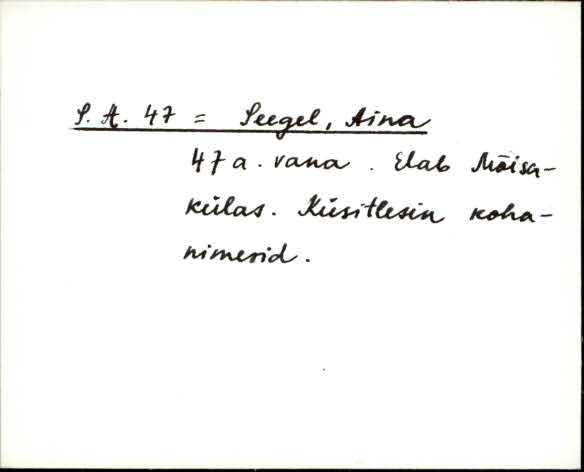 S. A. 47 = Seegel, Aina
47 a. vana. Elab Mõisa-
külas. Küsitlesin koha-
nimesid.